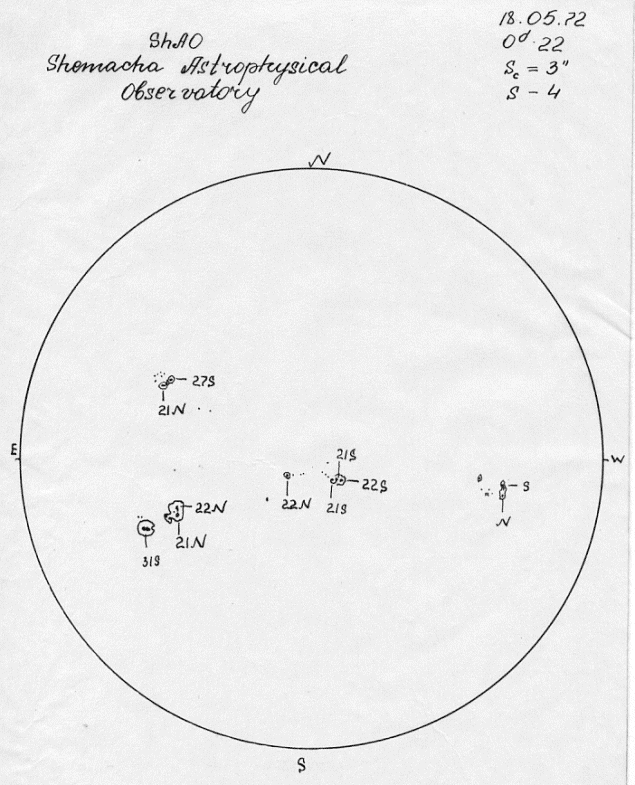 ShAO
Shemacha Astrophysical
Observatory
18.05.72
0d.22
Sc = 3"
S - 4
N
27S
21N
E
W
21S
22S
22N
21S
S
N
22N
21N
31S
S